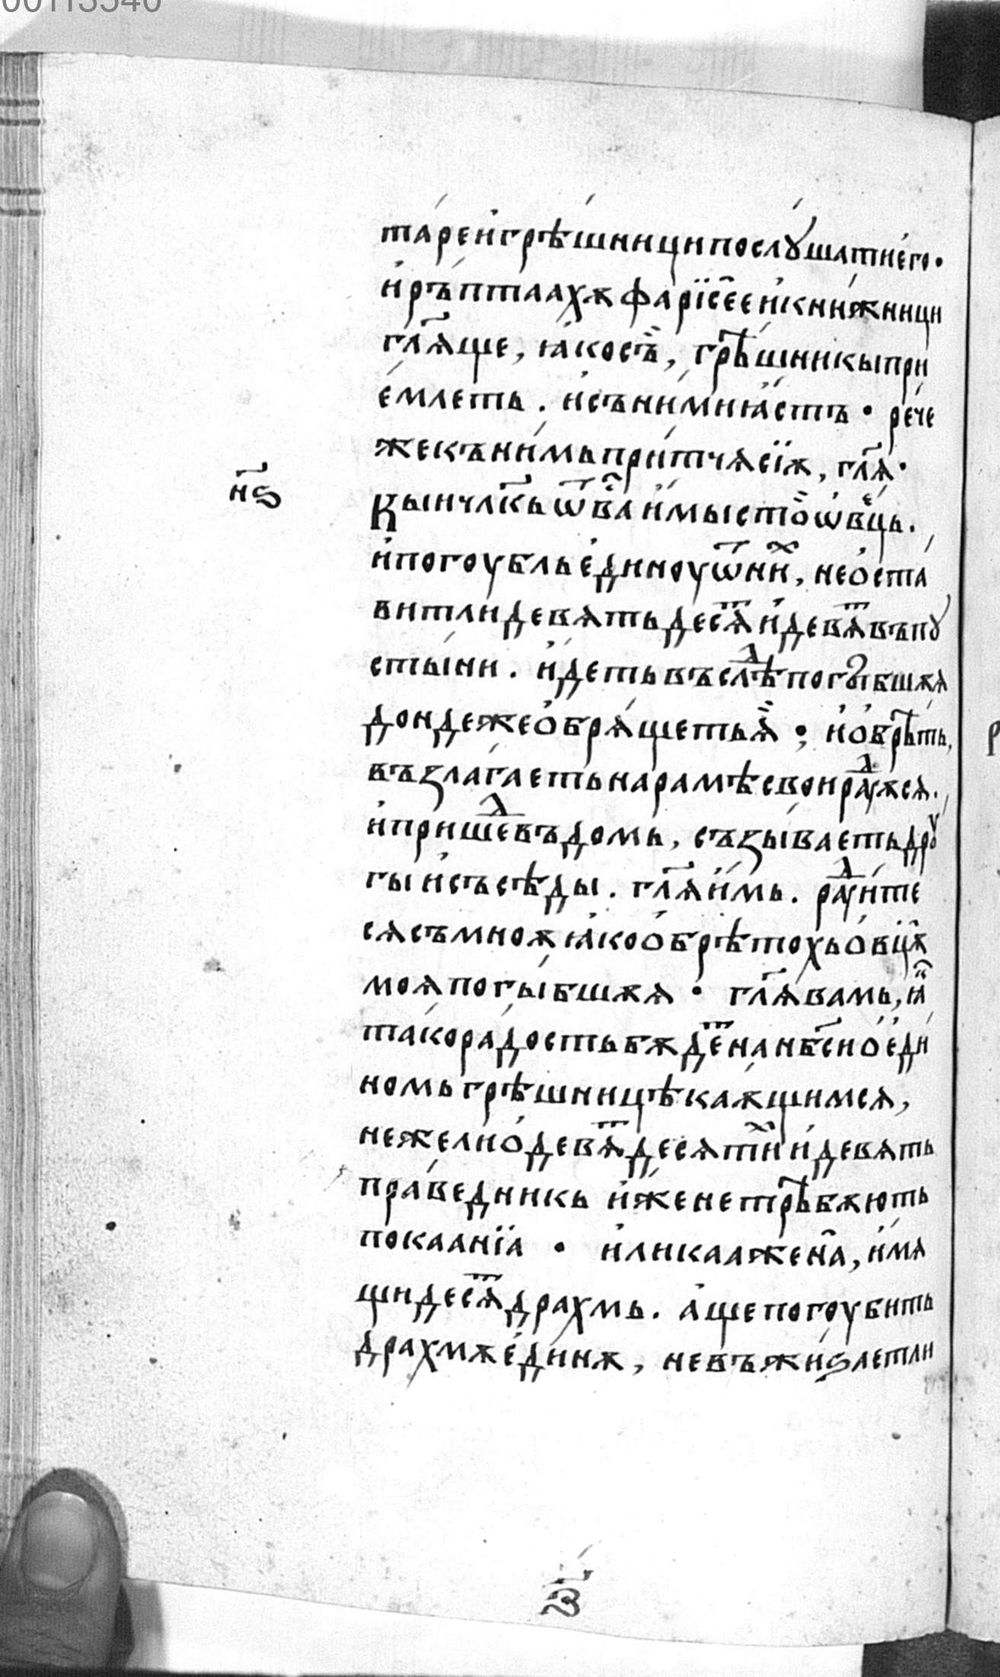 00113540
таре́и грѣ́шници послꙋ́шати е҆го̀·
и҆ ръ́птаахѫ фарїсе́е и҆ кни́жници
гл҃ѧще, ꙗ҆ко съ̏, грѣ́шникы при
е́млеть. и҆ съ ни́ми ꙗ҆сть · ре́че
же къ ни́мь при́тчѧ сїѫ, гл҃ѧ·
н҃ѕ
Кыи чл҃кь ѿ ва́с и҆мы сто̏ ѡ҆ве́ць.
и҆ погоубль е҆ди́ноу ѿ ни́х, не о҆ста́
вит ли девѧть десѧ́т и҆ девѧ́т въ пꙋ
сты́ни. и҆деть въ слѣ́д погы́бшѫѧ
дондеже о҆брѧ́щеть ѧ҆̏ · и҆ о҆брѣ́ть,
възлага́еть на рамѣ свои ра́дуѫсѧ.
и҆ прише́д въ домь, съзы́ваеть дрꙋ
гы и҆ съсѣ́ды. гл҃ѧ и҆́мь. ра́дуите
сѧ съ мноѫ ꙗ҆́ко о҆брѣтохь о҆вцѫ̀
моѧ погы́бшѫѧ · гл҃ѧ вамь, ꙗ҆́к
та́ко ра́дость бѫде́т на нб҃си о҆ е҆ди́
номь грѣ́шницѣ каѫщимсѧ,
нежели о҆ девѧ́т десѧти́х и҆ девѧть
пра́ведникь и҆же не трѣ́бѫють
покаа́нїа · и҆ли каа жена̀, и҆́мѧ
щи десѧ́т драхмь. а҆́ще погоубить
драхмѫ е҆ди́нѫ, не въжи́ѕлет ли